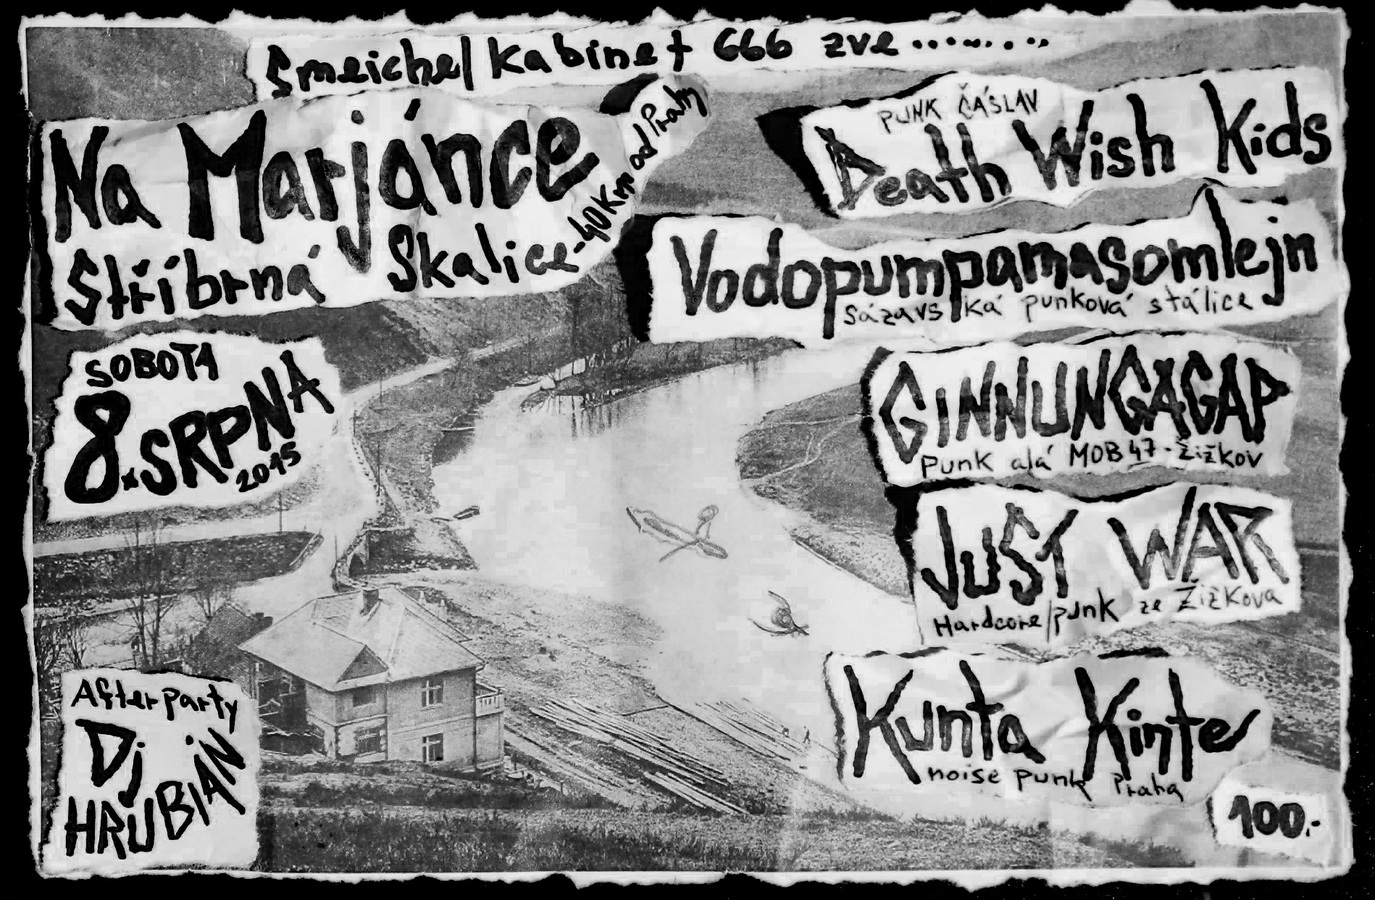 Smeichel Kabinet 666 zve ..........
Na Marjánce
Stříbrná Skalice - 40 Km od Prahy
SOBOTA
8. SRPNA
2015
PUNK ČÁSLAV
Death Wish Kids
Vodopumpamasomlejn
sázavská punková stálice
GINNUNGAGAP
Punk alá MOB 47 - Žižkov
JUST WAR
Hardcore/punk ze Žižkova
Kunta Kinte
noise punk Praha
100.-
Afterparty
Dj
HRUBIÁN